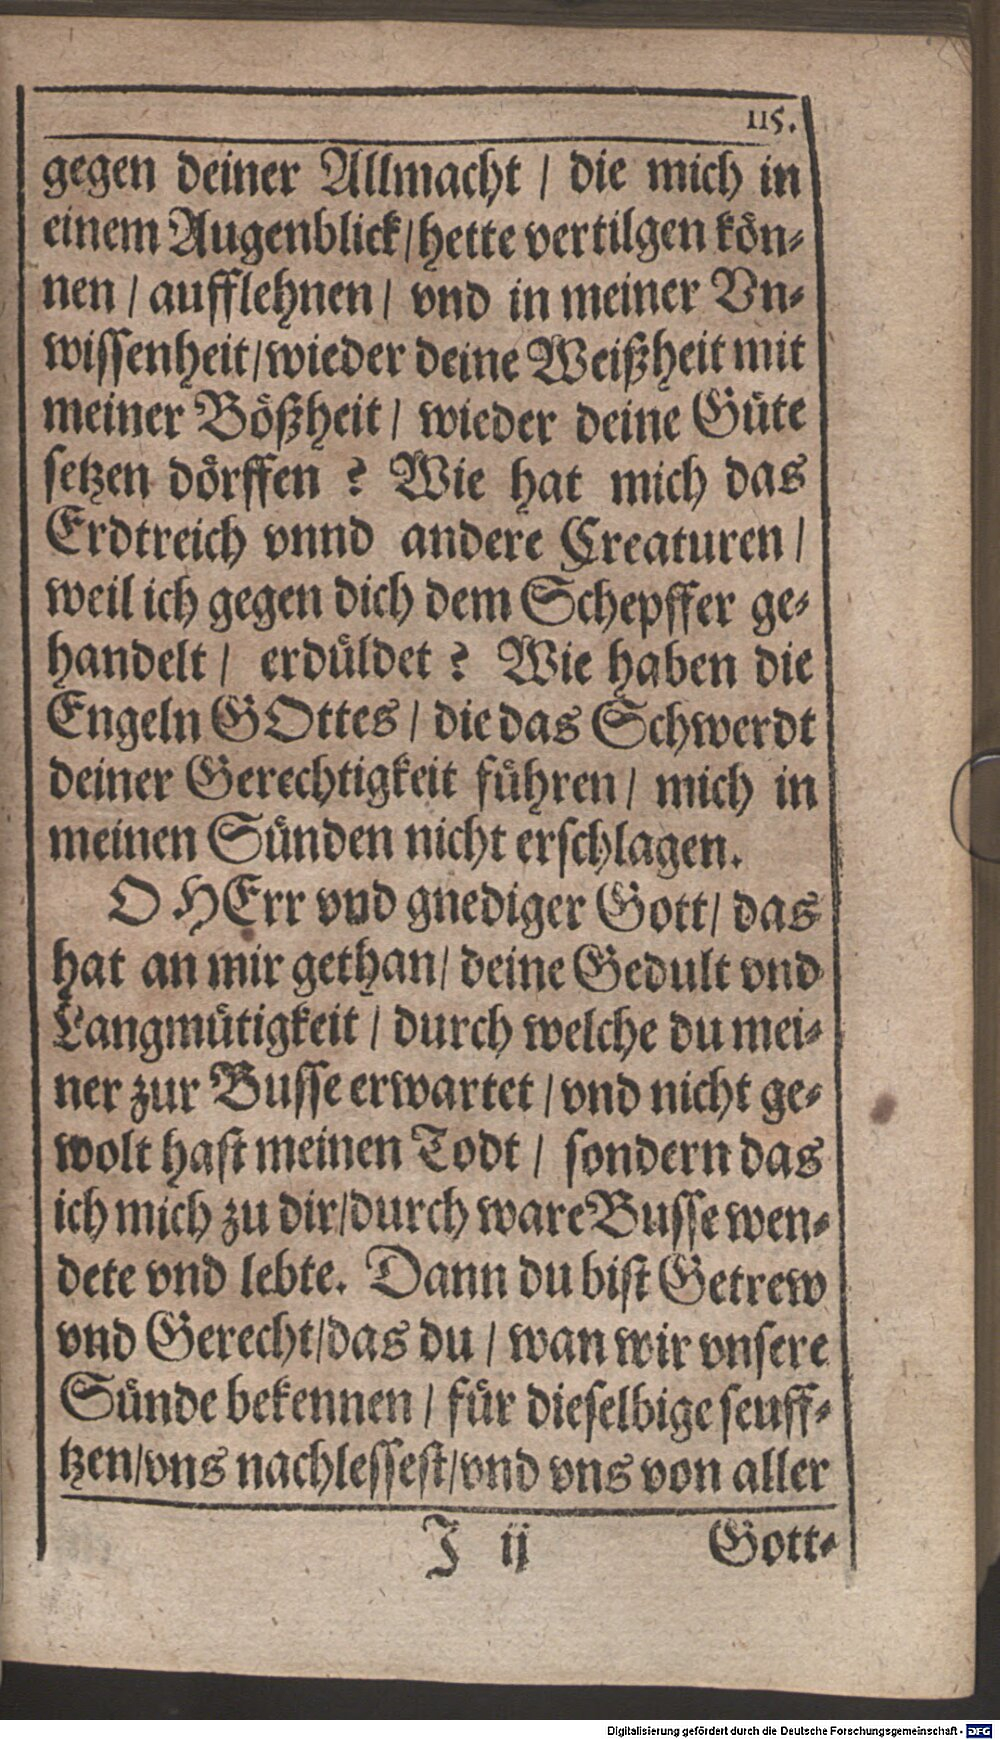 115.
gegen deiner Allmacht / die mich in
einem Augenblick/hette vertilgen kön-
nen / aufflehnen / vnd in meiner Vn-
wissenheit/wieder deine Weißheit mit
meiner Bößheit / wieder deine Güte
setzen dörffen ? Wie hat mich das
Erdtreich vnnd andere Creaturen /
weil ich gegen dich dem Schepffer ge-
handelt / erdüldet ? Wie haben die
Engeln GOttes / die das Schwerdt
deiner Gerechtigkeit führen / mich in
meinen Sünden nicht erschlagen.
O HErr vnd gnediger Gott/ das
hat an mir gethan/ deine Gedult vnd
Langmütigkeit / durch welche du mei-
ner zur Busse erwartet / vnd nicht ge-
wolt hast meinen Todt / sondern das
ich mich zu dir/durch ware Busse wen-
dete vnd lebte. Dann du bist Getrew
vnd Gerecht/das du / wan wir vnsere
Sünde bekennen / für dieselbige seuff-
tzen/vns nachlessest/vnd vns von aller
J ij Gott-
Digitalisierung gefördert durch die Deutsche Forschungsgemeinschaft - DFG